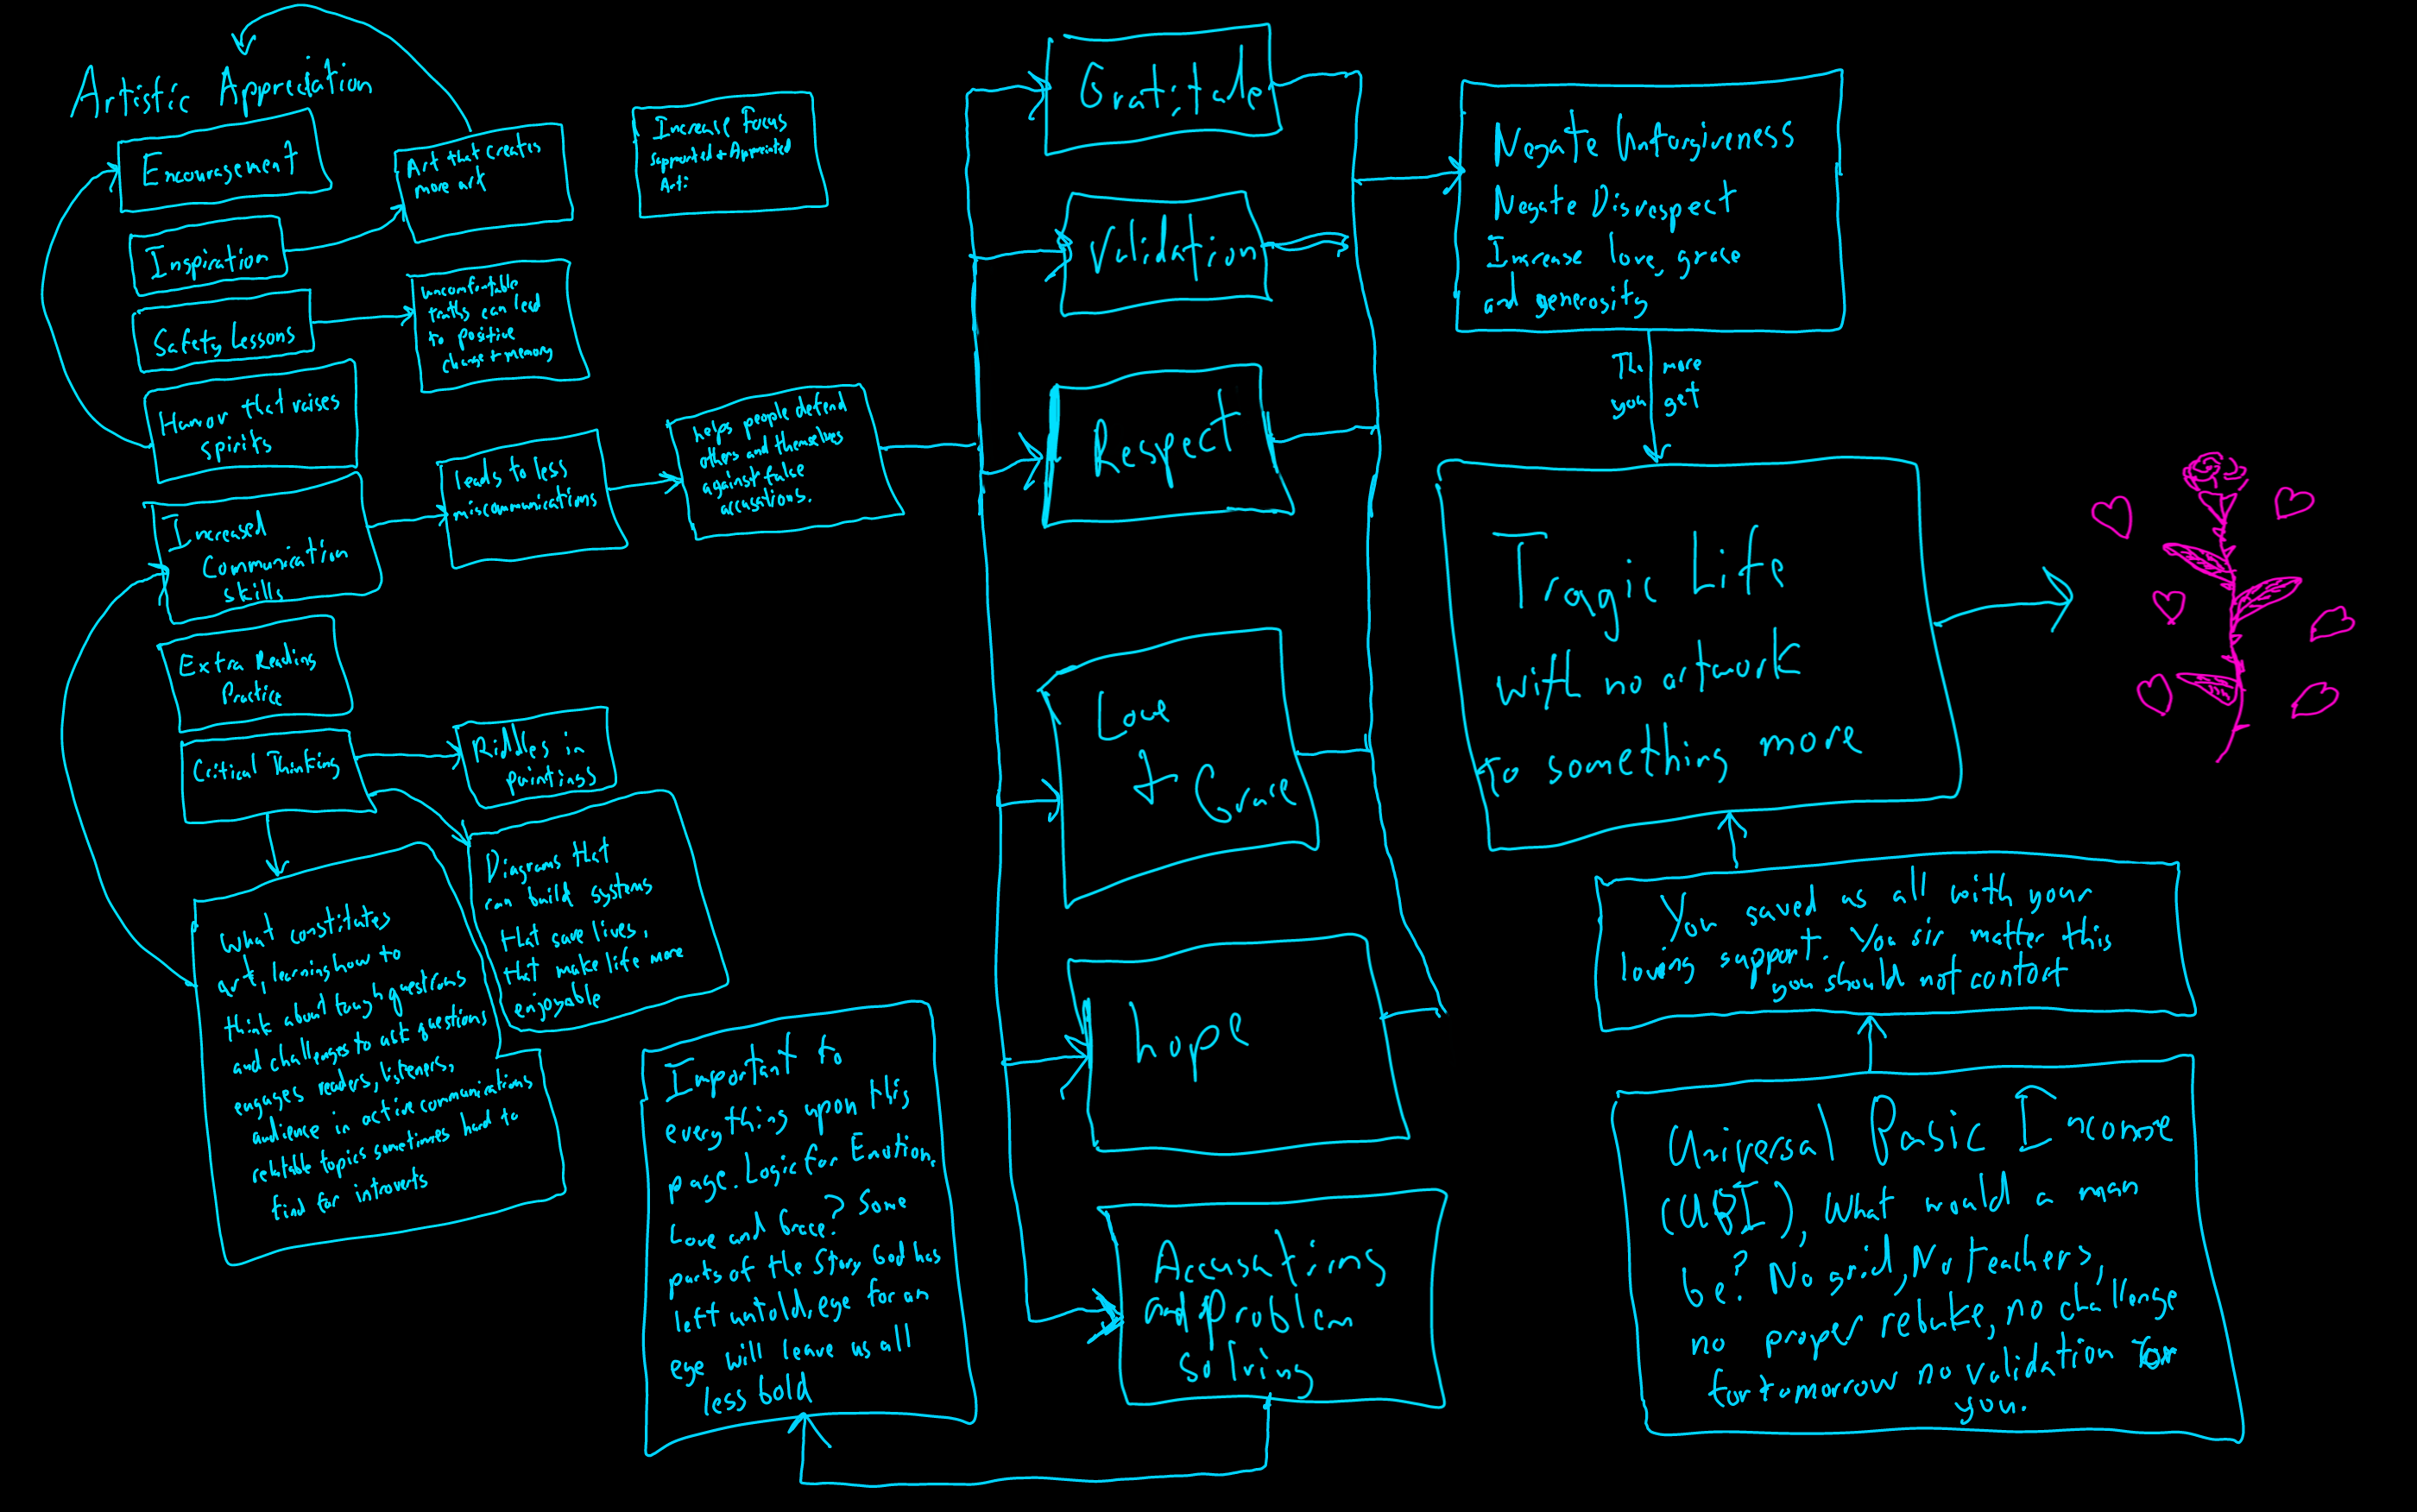 Artistic Appreciation
Encouragement
Inspiration
Safety Lessons
Humor that raises
spirits
Increased
Communication
skills
Extra Reading
Practice
Critical Thinking
What constitutes
art, learning how to
think about tough questions
and challenges to ask questions
engages readers, listeners,
audience in active communications
relatable topics sometimes hard to
find for introverts
Art that creates
more art
uncomfortable
truths can lead
to positive
change + memory
leads to less
miscommunications
Riddles in
paintings
Diagrams that
can build systems
that save lives,
that make life more
enjoyable
Increase Focus
Supported + Appreciated
Art:
helps people defend
others and themselves
against false
accusations.
Important to
everything upon this
page. Logic for Emotion.
Love and Grace? Some
parts of the Story God has
left untold, eye for an
eye will leave us all
less bold
Gratitude
Validation
Respect
Love
+ Grace
hope
Accusations
and Problem
solving
Negate Unforgiveness
Negate Disrespect
Increase love, grace
and generosity
The more
you get
Tragic Life
with no artwork
to something more
You saved us all with your
loving support. You sir matter this
you should not contort
Universal Basic Income
(UBI), What would a man
be? No grid, No teachers,
no proper rebuke, no challenge
for tomorrow no validation for
you.